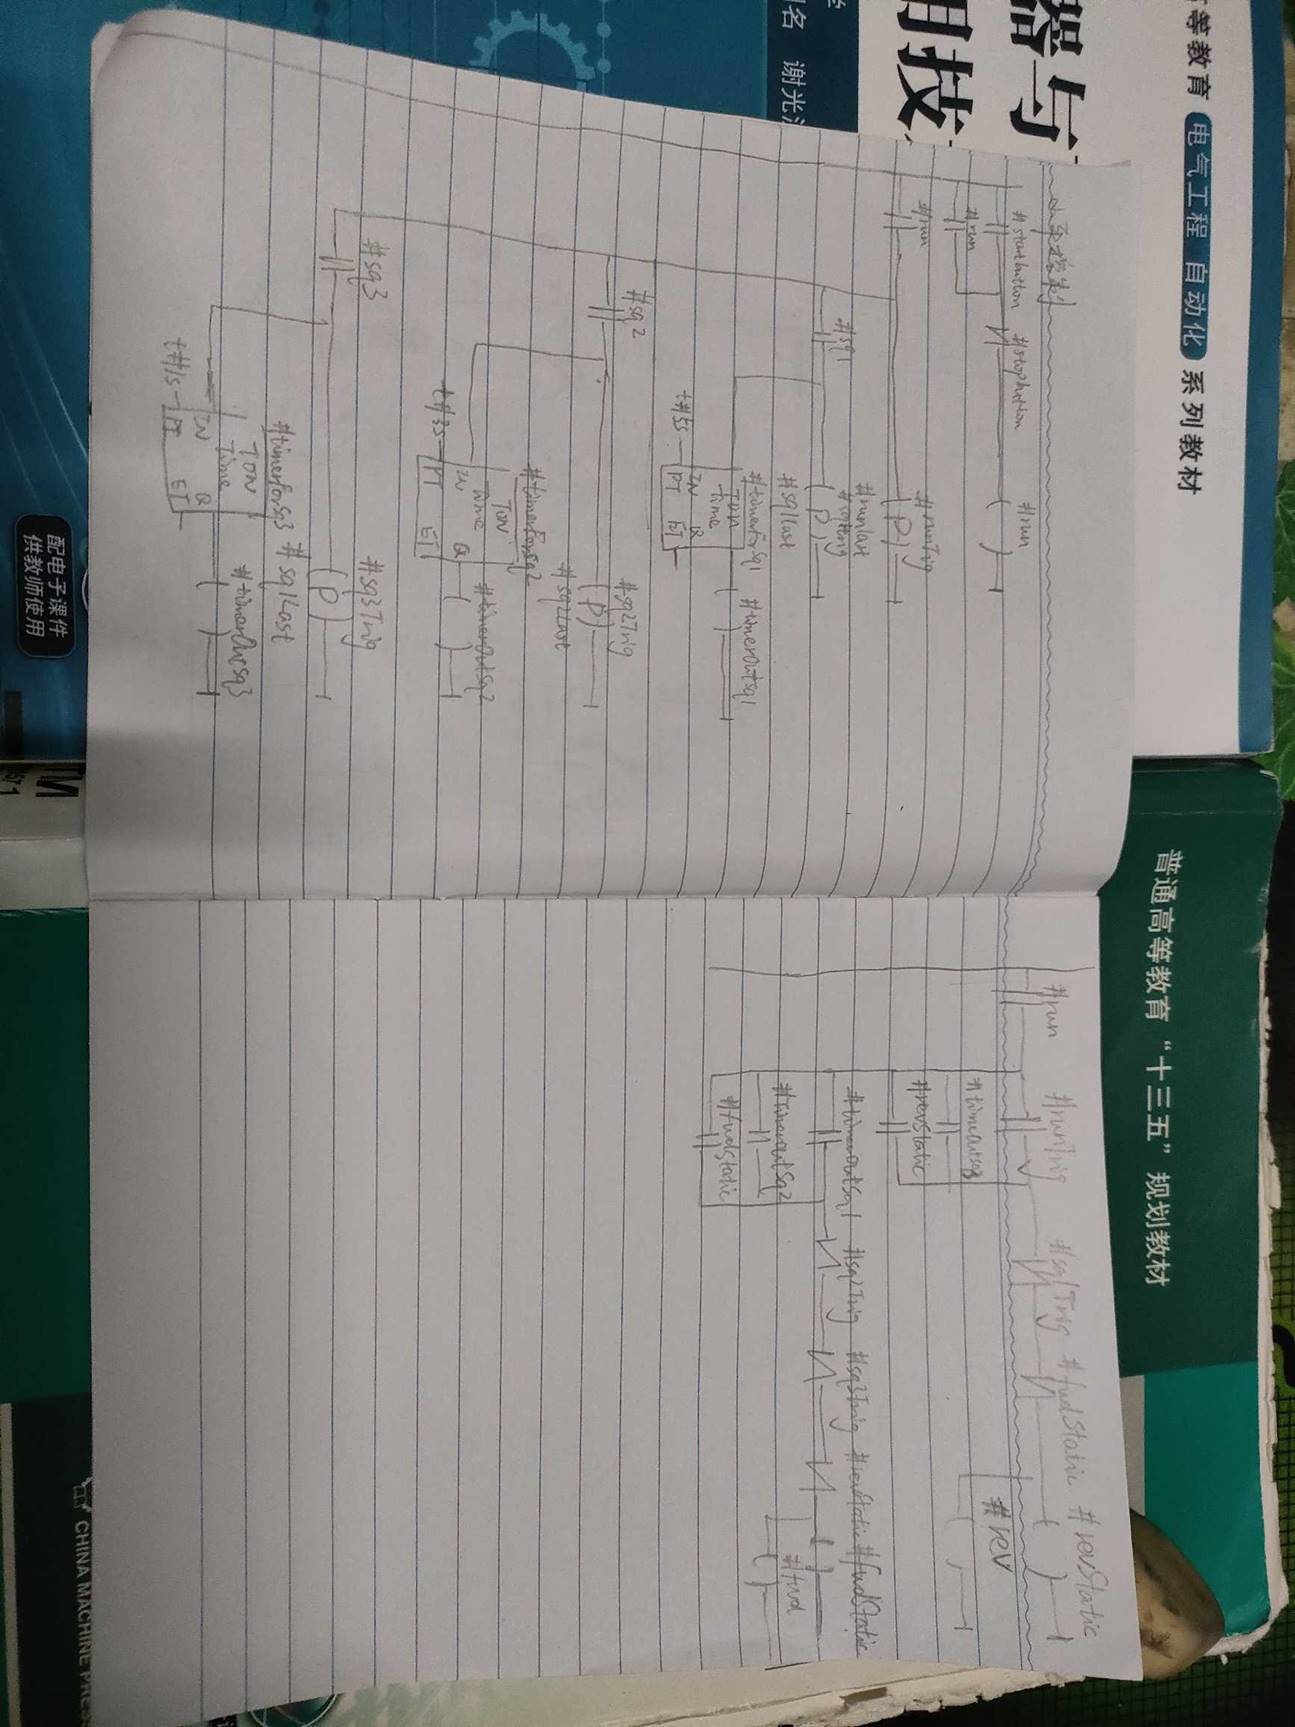 小车控制
#startbutton #stopbutton #run
#run
#run #runTrig
( P )
#runlast
#sq1 #sq1Trig
( P )
#sq1last
#timerForsq1 #timerOutsq1
TON
Time
IN Q
t#5s PT ET
#sq2 #sq2Trig
( P )
#sq2Last
#timerForsq2 #timerOutsq2
TON
Time
IN Q
t#3s PT ET
#sq3 #sq3Trig
( P )
#sq1Last
#timerForsq3 #timerOutsq3
TON
Time
IN Q
t#1s PT ET
#run #runTrig #sq1Trig #fwdStatic #revStatic
#timeOutsq3 #rev
#revStatic
#timerOutSq1 #sq2Trig #sq3Trig #revStatic #fwdStatic
#timerOutSq2 #fwd
#fwdStatic
高等教育 电气工程 自动化 系列教材
器与
用技
谢光
配电子课件
供教师使用
普通高等教育“十三五”规划教材
CHINA MACHINE PRESS